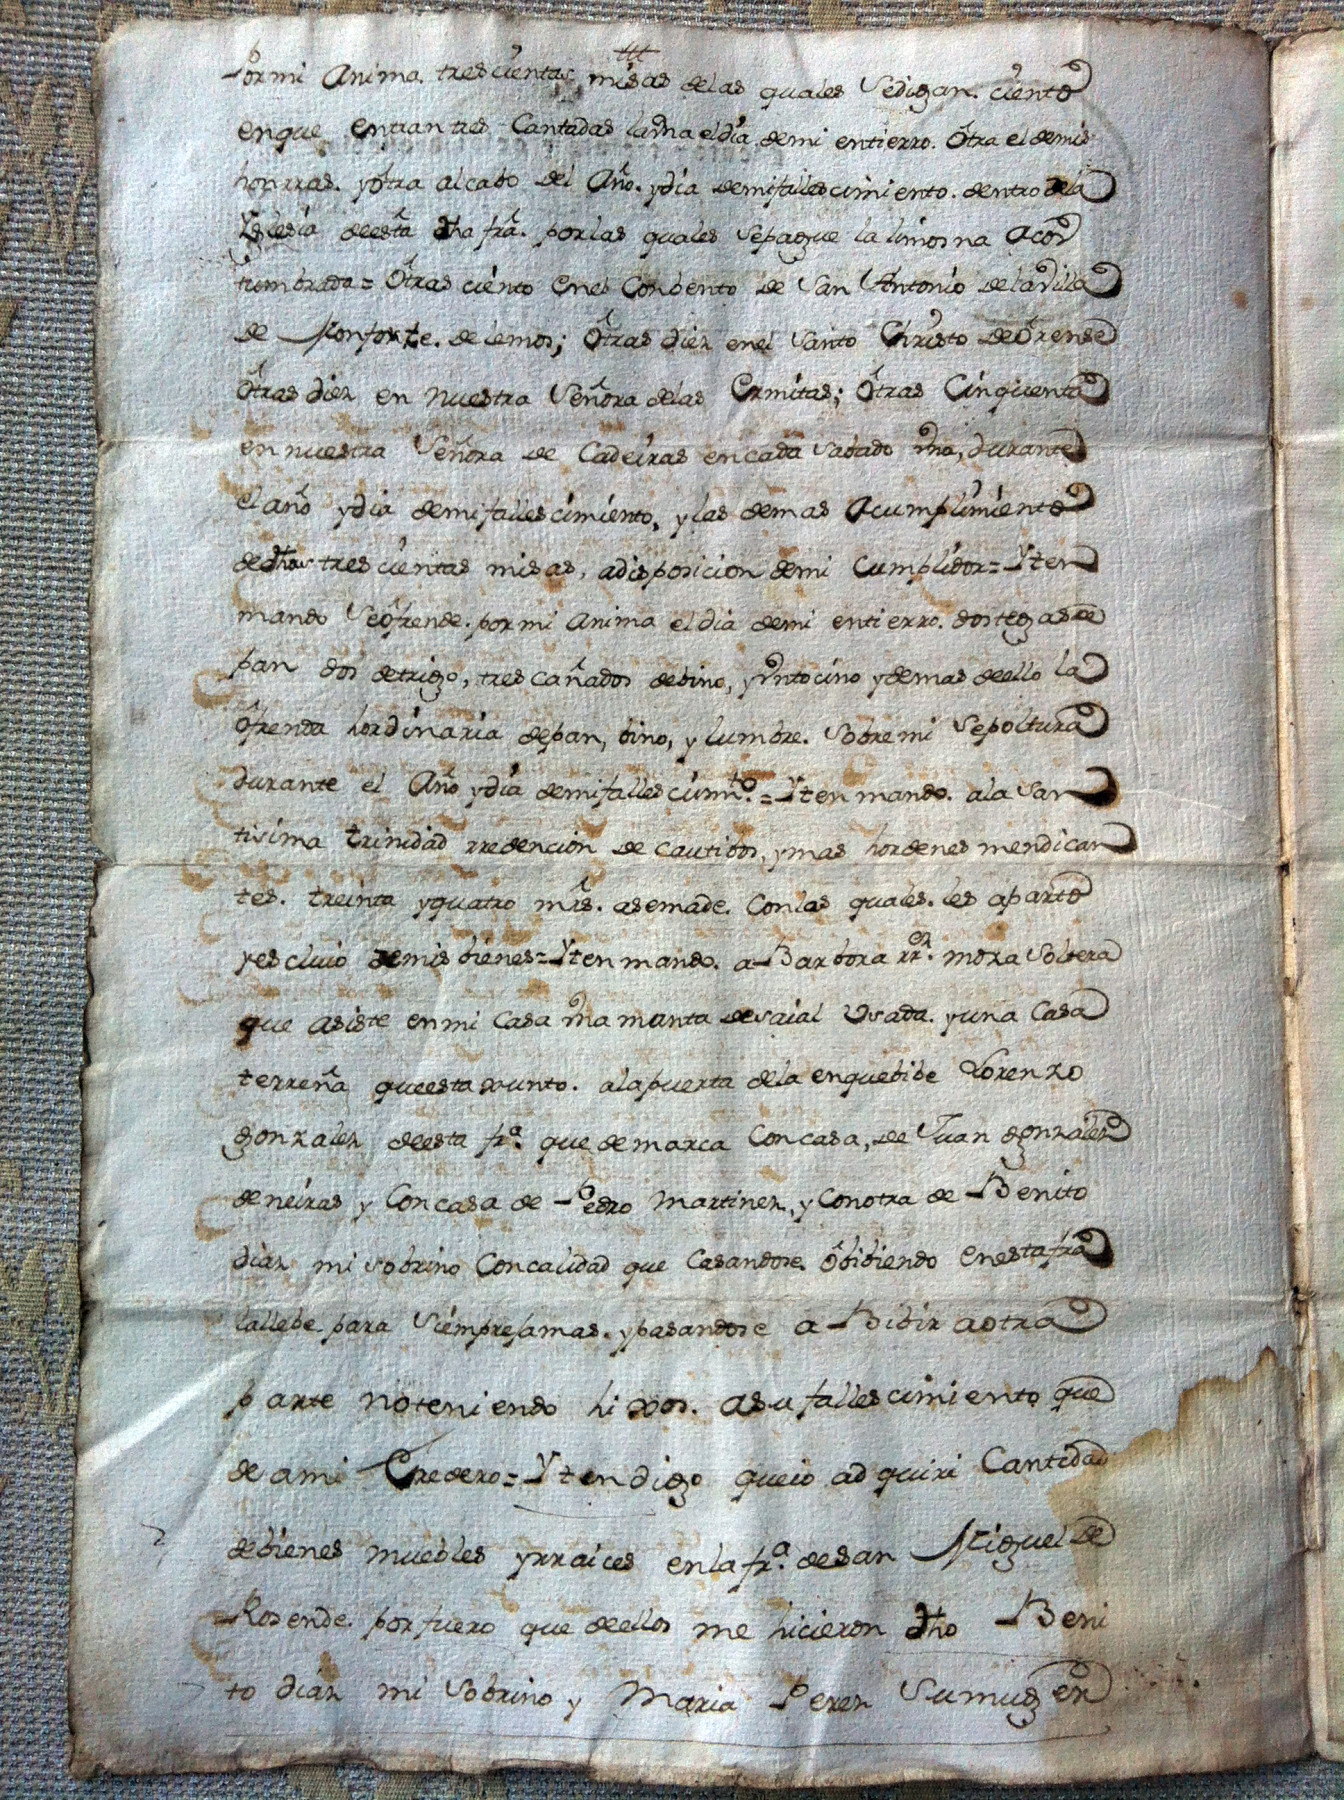 Por mi Anima. trescientas misas delas quales Sedigan. ciento
enque entran tres Cantadas la una eldia demi entierro. Otra el demis
honrras. yotra alcabo del Año. ydia demifallescimiento. dentro dela
Yglesia deesta dha frã. porlas quales Sepague la limosna Acos
tumbrada = Otras ciento Enel Conbento de San Antonio dela villa
de Monforte. de lemos; Otras diez enel Santo Christo de Orense
Otras diez en Nuestra Señora delas Ermitas; Otras Cinquenta
en nuestra Señora de Cadeiras encada Sabado una, durante
el año ydia demifallescimiento, ylas demas Acumplimiento
de dhas trescientas misas, adisposicion demi Cumplidor = Yten
mando Seofrende. por mi Anima el dia demi entierro. dos tegas de
pan dos detrigo, tres cañados debino, yuntocino ydemas deello la
Ofrenda hordinaria depan, bino, y lumbre. Sobremi Sepoltura
durante el Año ydia demifallescimto. = Yten mando. ala San
tisima trinidad rredencion de cautibos, ymas hordenes mendican
tes. treinta yquatro mrs. asemade. Conlas quales. les aparto
yescluio demis bienes = Yten mando. a Barbora rrez. moza Soltera
que asiste enmi Casa una manta desaial Usada. yuna Casa
terreña queesta xunto. ala puerta dela enquebibe Lorenzo
gonzalez deesta fra. que demarca Concasa, de Juan gonzalez
deneiras y Concasa de Pedro Martinez, y Conotra de Benito
diaz mi sobrino Concalidad que Casandose. Obibiendo Enesta frã
lallebe. para Siemprejamas. ypasandose a Bibir aotra
parte noteniendo hixos. asu fallescimiento que
de ami Eredero = Yten digo queio adquiri Cantidad
debienes muebles yrraices enla fra. desan Miguel de
Rosende. por fuero que deellos me hicieron dho Beni
to diaz mi Sobrino y Maria Perez Sumuger